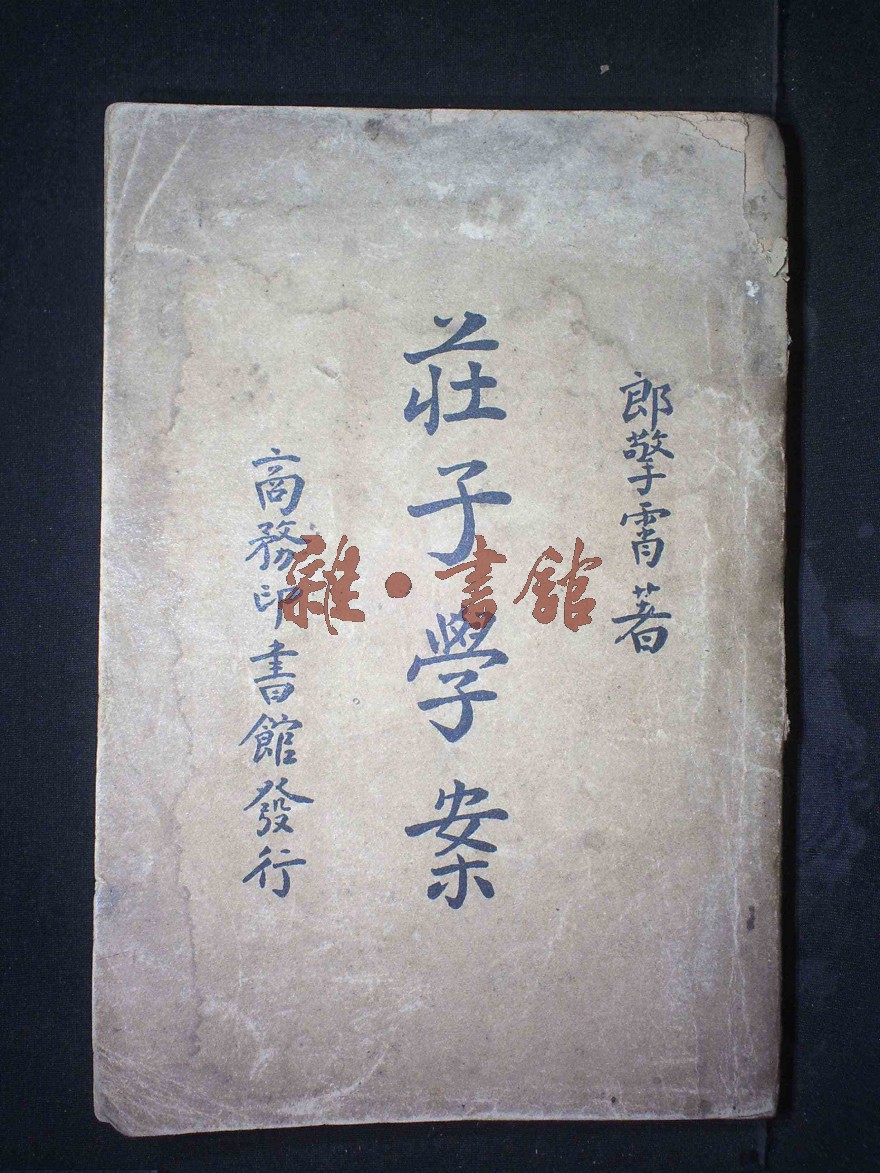 郎擎霄著
莊子學案
商務印書館發行
雜·書館